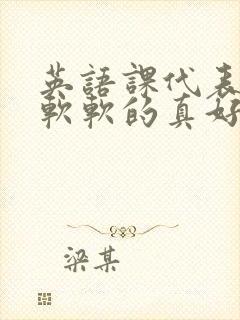 英語課代表
軟軟的真好
梁某